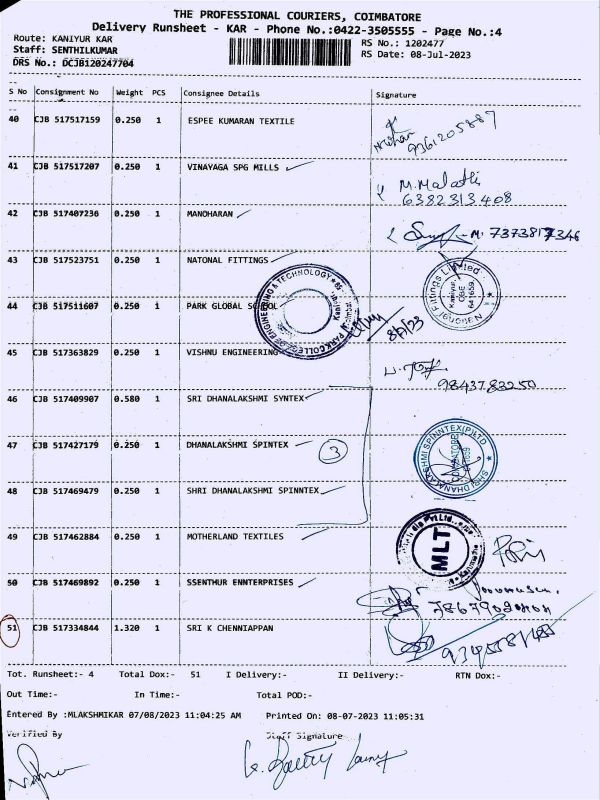 THE PROFESSIONAL COURIERS, COIMBATORE
Delivery Runsheet - KAR - Phone No.:0422-3505555 - Page No.:4
Route: KANIYUR KAR
RS No.: 1202477
Staff: SENTHILKUMAR
RS Date: 08-Jul-2023
DRS No.: DCJB120247704
S No Consignment No Weight PCS Consignee Details Signature
40 CJB 517517159 0.250 1 ESPEE KUMARAN TEXTILE
9361205887
41 CJB 517517207 0.250 1 VINAYAGA SPG MILLS
M. Malathi
6382313408
42 CJB 517407236 0.250 1 MANOHARAN
43 CJB 517523751 0.250 1 NATONAL FITTINGS
National Fittings Limited
Kaniyur,
CBE
641659.
44 CJB 517511607 0.250 1 PARK GLOBAL SCHOOL
PARK COLLEGE OF ENGINEERING & TECHNOLOGY
8/7/23
45 CJB 517363829 0.250 1 VISHNU ENGINEERING
9843783250
46 CJB 517409907 0.580 1 SRI DHANALAKSHMI SYNTEX
47 CJB 517427179 0.250 1 DHANALAKSHMI SPINTEX
3
SHRI DHANALAKSHMI SPINNTEX (P) LTD
COIMBATORE
48 CJB 517469479 0.250 1 SHRI DHANALAKSHMI SPINNTEX
49 CJB 517462884 0.250 1 MOTHERLAND TEXTILES
MLT
50 CJB 517469892 0.250 1 SSENTHUR ENNTERPRISES
51 CJB 517334844 1.320 1 SRI K CHENNIAPPAN
Tot. Runsheet:- 4 Total Dox:- 51 I Delivery:- II Delivery:- RTN Dox:-
Out Time:- In Time:- Total POD:-
Entered By :MLAKSHMIKAR 07/08/2023 11:04:25 AM Printed On: 08-07-2023 11:05:31
Verified By Staff Signature